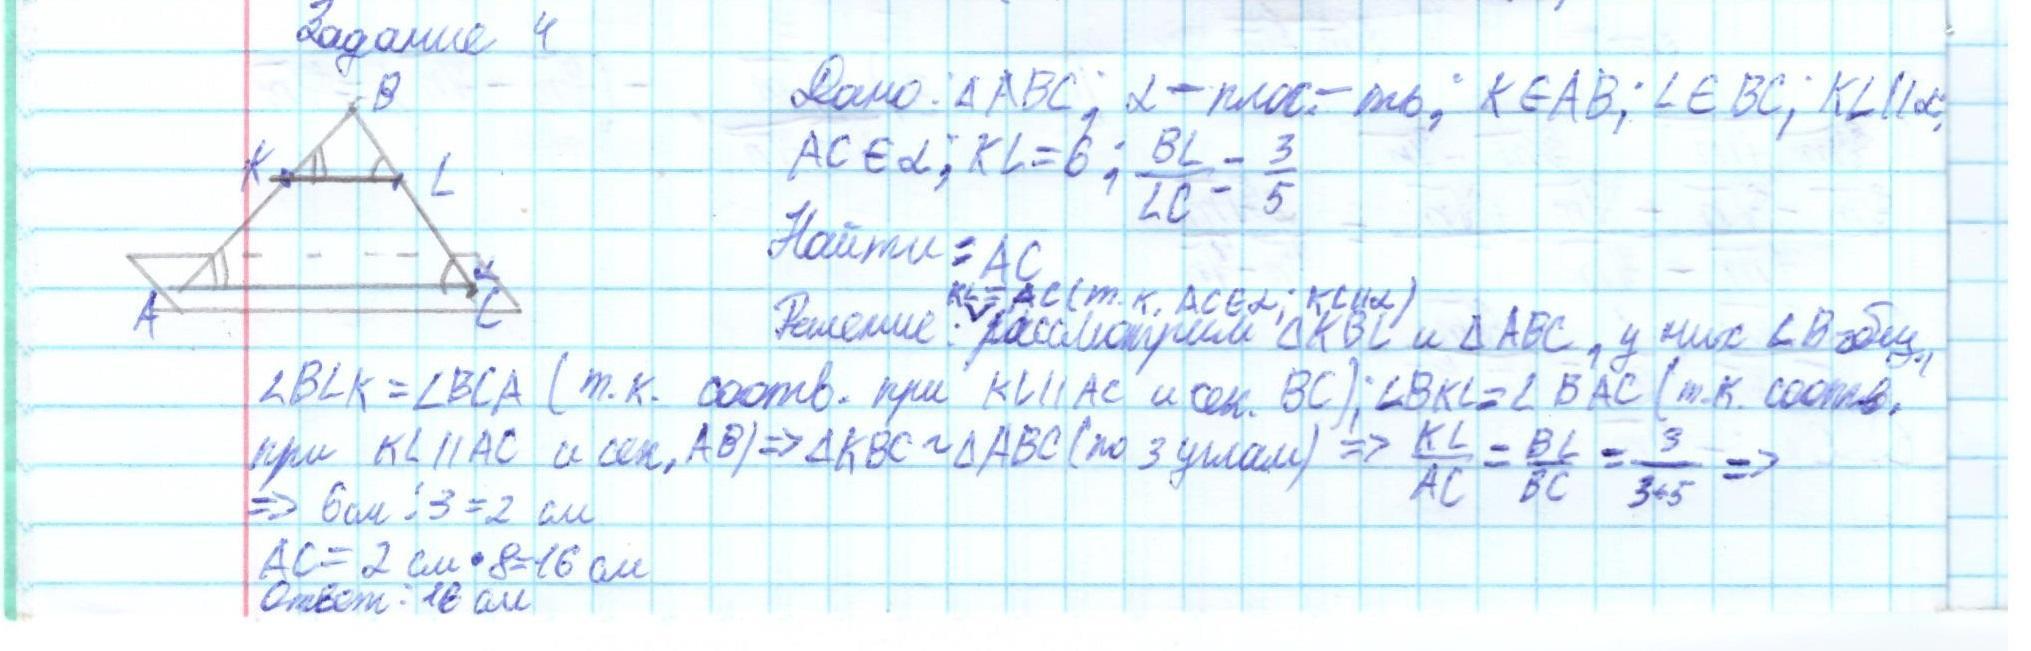 Задание 4
B
K
L
A
C
α
Дано: △ABC; α – плос.-ть; K∈AB; L∈BC; KL||α;
AC∈α; KL=6; BL/LC = 3/5
Найти: AC
KL = AC (т.к. AC∈α; KL||α)
Решение: рассмотрим △KBL и △ABC, у них ∠B-общ.,
∠BLK=∠BCA (т.к. соотв. при KL||AC и сек. BC); ∠BKL=∠BAC (т.к. соотв.
при KL||AC и сек. AB) => △KBC ~ △ABC (по 3 углам) => KL/AC = BL/BC = 3/3+5 =>
=> 6см : 3 = 2 см
AC = 2 см • 8=16 см
Ответ: 16 см